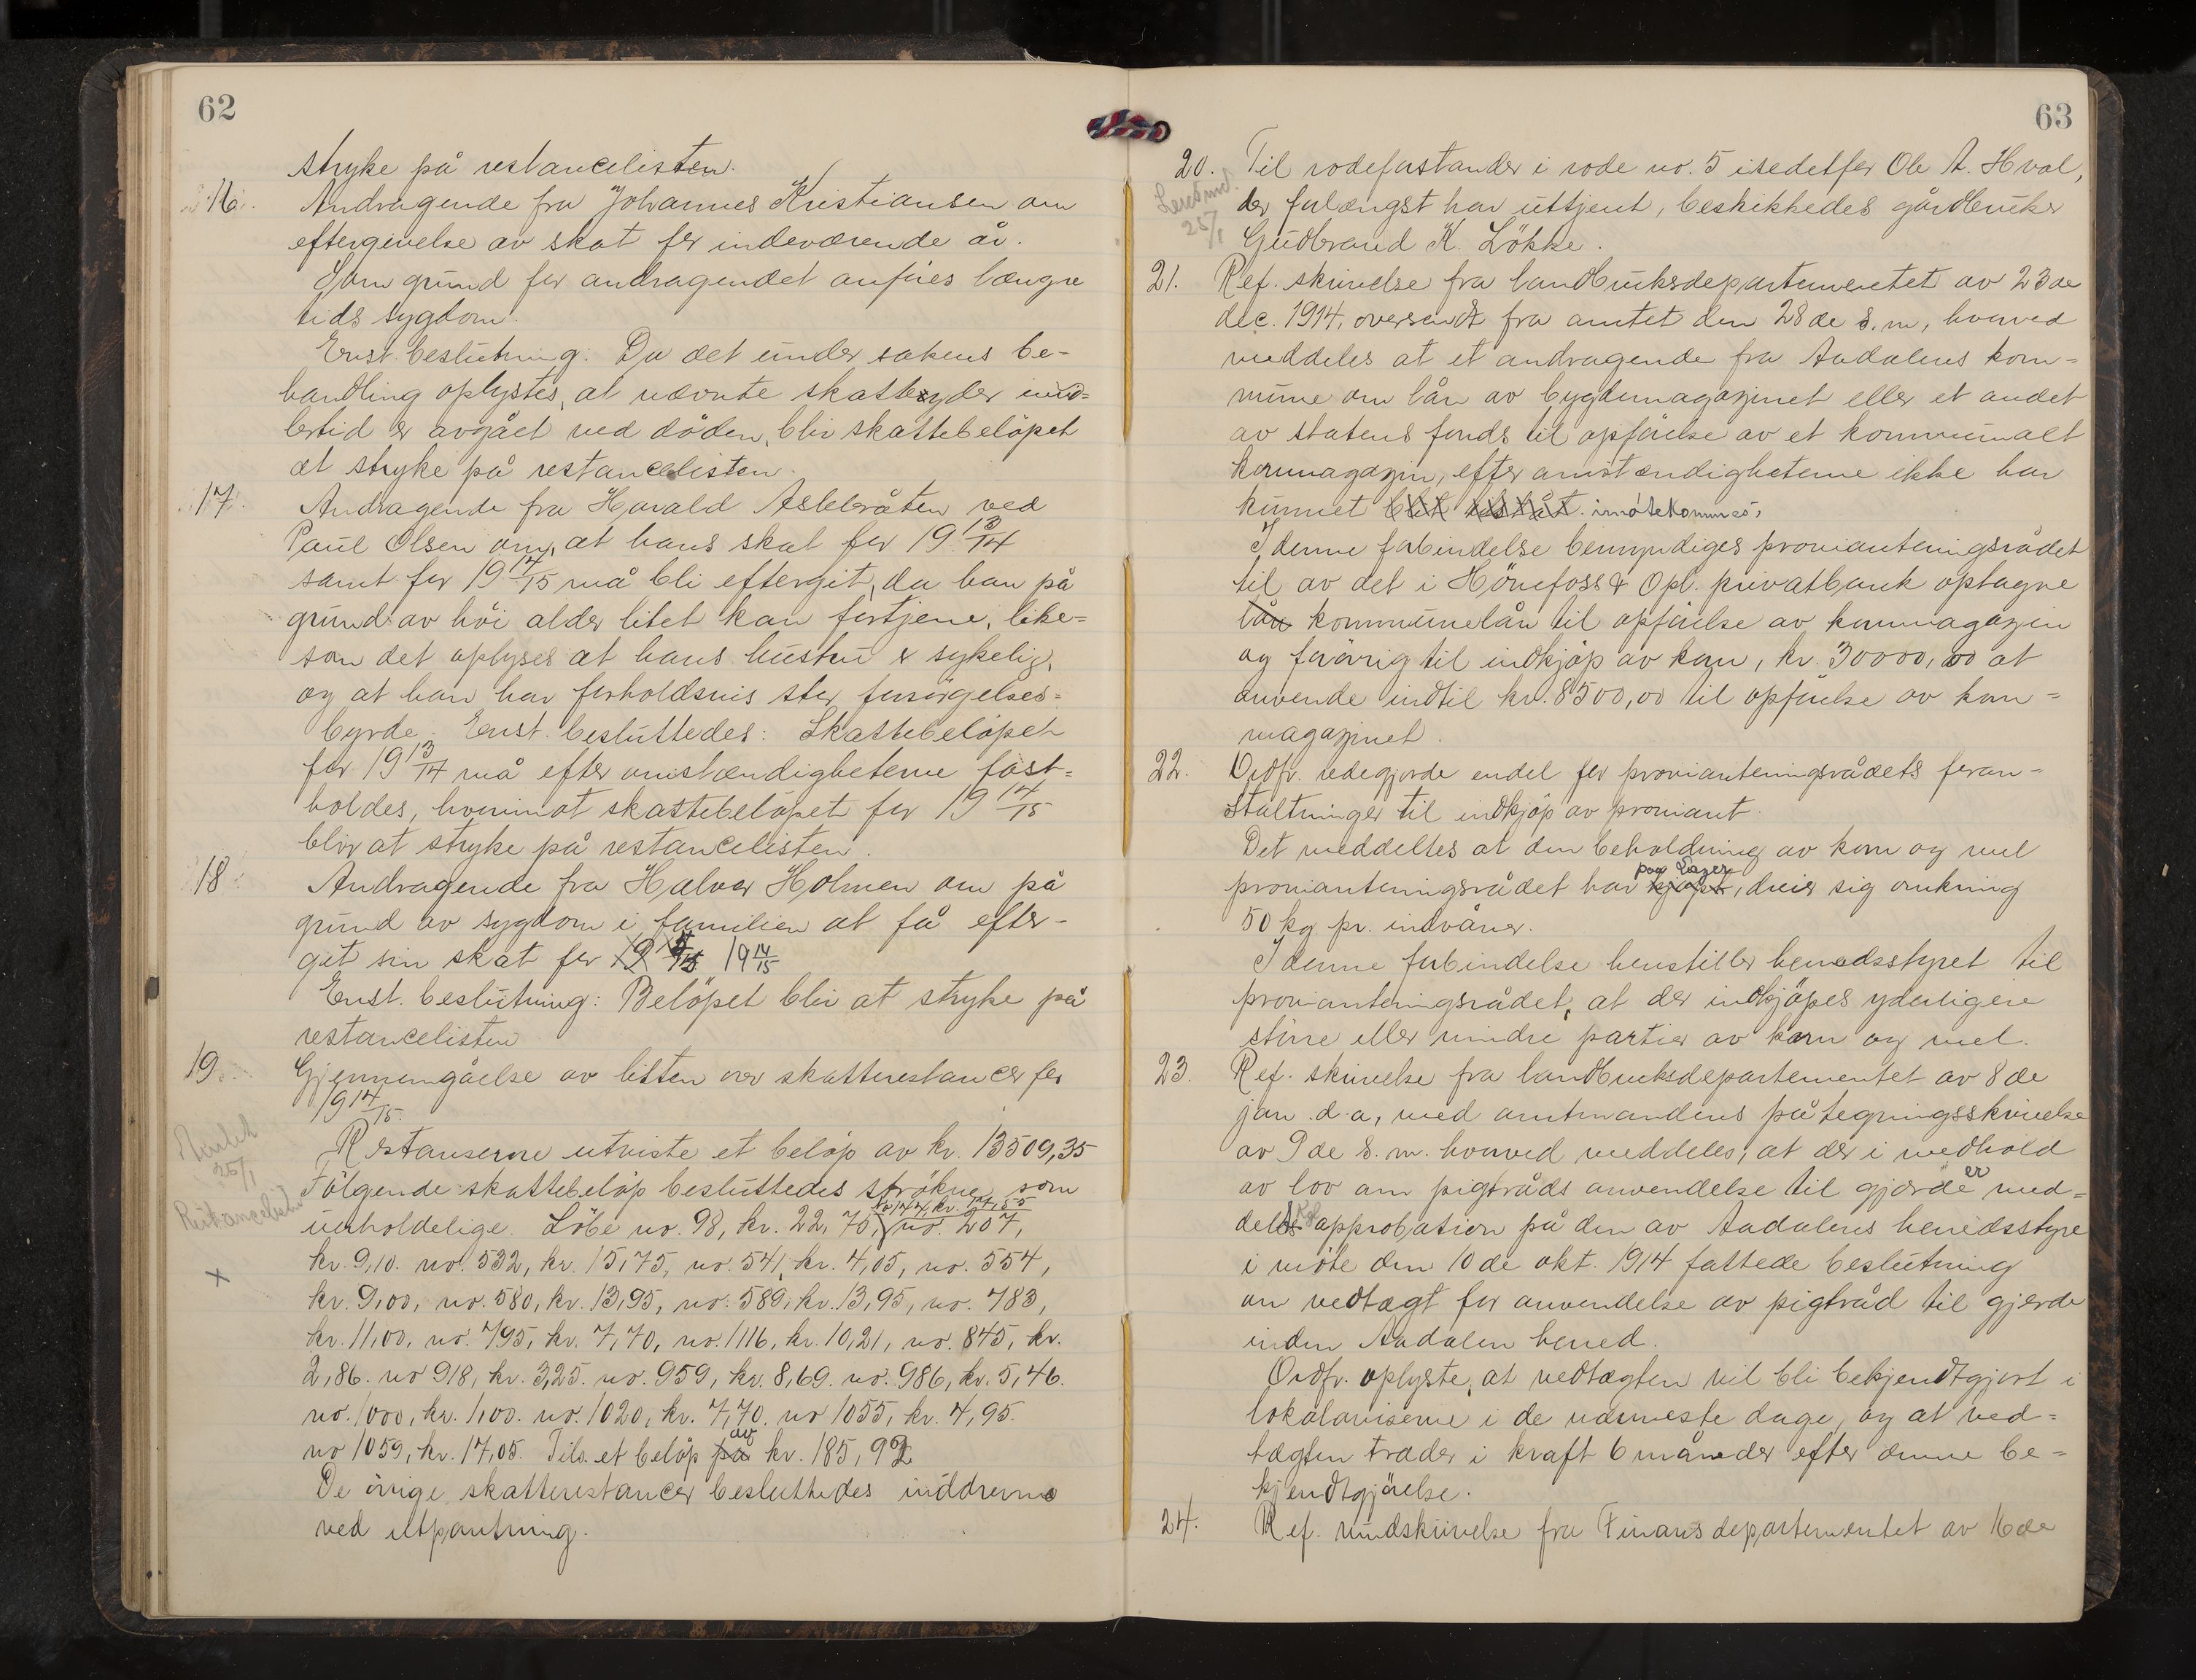 62
stryke på restancelisten.
16. Andragende fra Johannes Kristiansen om
eftergivelse av skat for indeværende år.
Som grund for andragendet anføres længre
tids sygdom.
Enst. beslutning: Da det under sakens be-
handling oplystes, at nævnte skatteyder imid-
lertid er avgået ved döden, blir skattebelöpet
at stryke på restancelisten.
17. Andragende fra Harald Aslebråten ved
Paul Olsen om, at hans skat for 19 13/14
samt for 19 14/15 må bli eftergit, da han på
grund av höi alder litet kan fortjene, like-
som det oplyses at hans hustru er sykelig,
og at han har forholdsvis stor forsörgelses-
byrde. Enst. besluttedes: Skattebelöpet
for 19 13/14 må efter omstændigheterne fast-
holdes, hvorimot skattebelöpet for 19 14/15
blir at stryke på restancelisten.
18. Andragende fra Halvor Holmen om på
grund av sygdom i familien at få efter-
git sin skat for 19 14/15
Enst. beslutning: Belöpet blir at stryke på
restancelisten
19. Gjennemgåelse av listen over skatterestancer for
19 14/15.
Restanserne utviste et belöp av kr. 13509,35
25/1
Fölgende skattebelöp besluttedes strökne som
Restancelisten
uerholdelige. Löbe no. 98, kr. 22,75, no. 207,
kr. 9,10. no. 532, kr. 15,75, no. 541, kr. 4,05, no. 554,
x
kr. 9,00, no. 580, kr. 13,95, no. 589, kr. 13,95, no. 783,
kr. 11,00, no. 795, kr. 7,70, no. 1116, kr. 10,21, no. 845, kr.
2,86. no 918, kr. 3,25. no. 959, kr. 8,69. no. 986, kr. 5,46.
no. 1000, kr. 1,00. no. 1020, kr. 7,70. no 1055, kr. 4,95.
no 1059, kr. 17,05. Tils. et belöp på av kr. 185,92
De övrige skatterestancer besluttedes inddrevne
ved utpantning.
63
20. Til rodeforstander i rode no. 5 istedetfor Ole A. Hval,
Lensmd.
der forlængst har uttjent, beskikkedes gårdbruker
25/1
Gudbrand K. Lökke.
21. Ref. skrivelse fra landbruksdepartementet av 23de
dec. 1914, oversendt fra amtet den 28de s.m, hvorved
meddeles at et andragende fra Aadalens kom-
mune om lån av bygdemagazinet eller et andet
av statens fonds til opförelse av et kommunalt
kornmagazin, efter omstændigheterne ikke har
kunnet imötekommes.
I denne forbindelse bemyndiges provianteringsrådet
til av det i Hönefoss & Opl. privatbank optagne
lån kommunelån til opförelse av kornmagazin
og forövrig til indkjöp av korn, kr. 30000,00 at
anvende indtil kr. 8500,00 til opförelse av korn-
magazinet.
22. Ordf. redegjorde endel for provianteringsrådets foran-
staltninger til indkjöp av proviant.
Det meddeltes at den beholdning av korn og mel
provianteringsrådet har kjöpt paa Lager, dreier sig omkring
50 kg. pr. indvåner.
I denne forbindelse henstiller herredsstyret til
provianteringsrådet, at der indkjöpes yderligere
större eller mindre partier av korn og mel.
23. Ref. skrivelse fra landbruksdepartementet av 8de
jan. d.a, med amtmandens påtegningsskrivelse
av 9de s.m. hvorved meddeles, at der i medhold
av lov om pigtråds anvendelse til gjærde er med-
delt approbation på den av Aadalens herredsstyre
i möte den 10de okt. 1914 fattede beslutning
om vedtægt for anvendelse av pigtråd til gjerde
inden Aadalen herred.
Ordf. oplyste, at vedtægten vil bli bekjendtgjort i
lokalaviserne i de nærmeste dage, og at ved-
tægten træder i kraft 6 måneder efter denne be-
kjendtgjörelse.
24. Ref. rundskrivelse fra Finansdepartementet av 16de